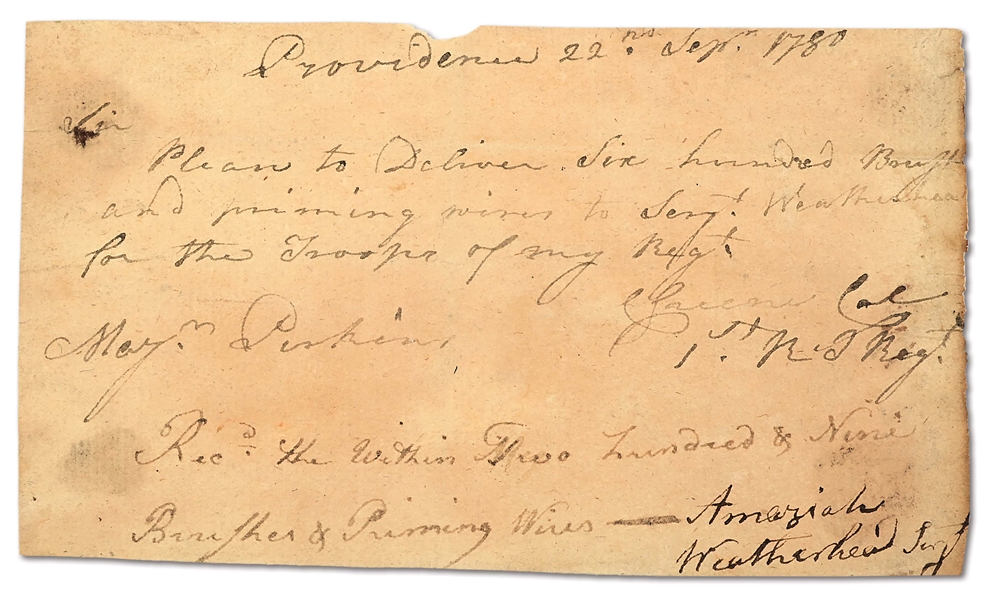 Providence 22.nd Sepr. 1780
Sir
Please to Deliver Six hundred Brush
and priming wires to Sergt. Weatherhea
for the Troops of my Regt.
CGreene Col
Mayr. Perkins 1.st R I Regt.
Recd. the within Two hundred & Nine
Brushes & Priming Wires — Amaziah
Weatherhead Sergt